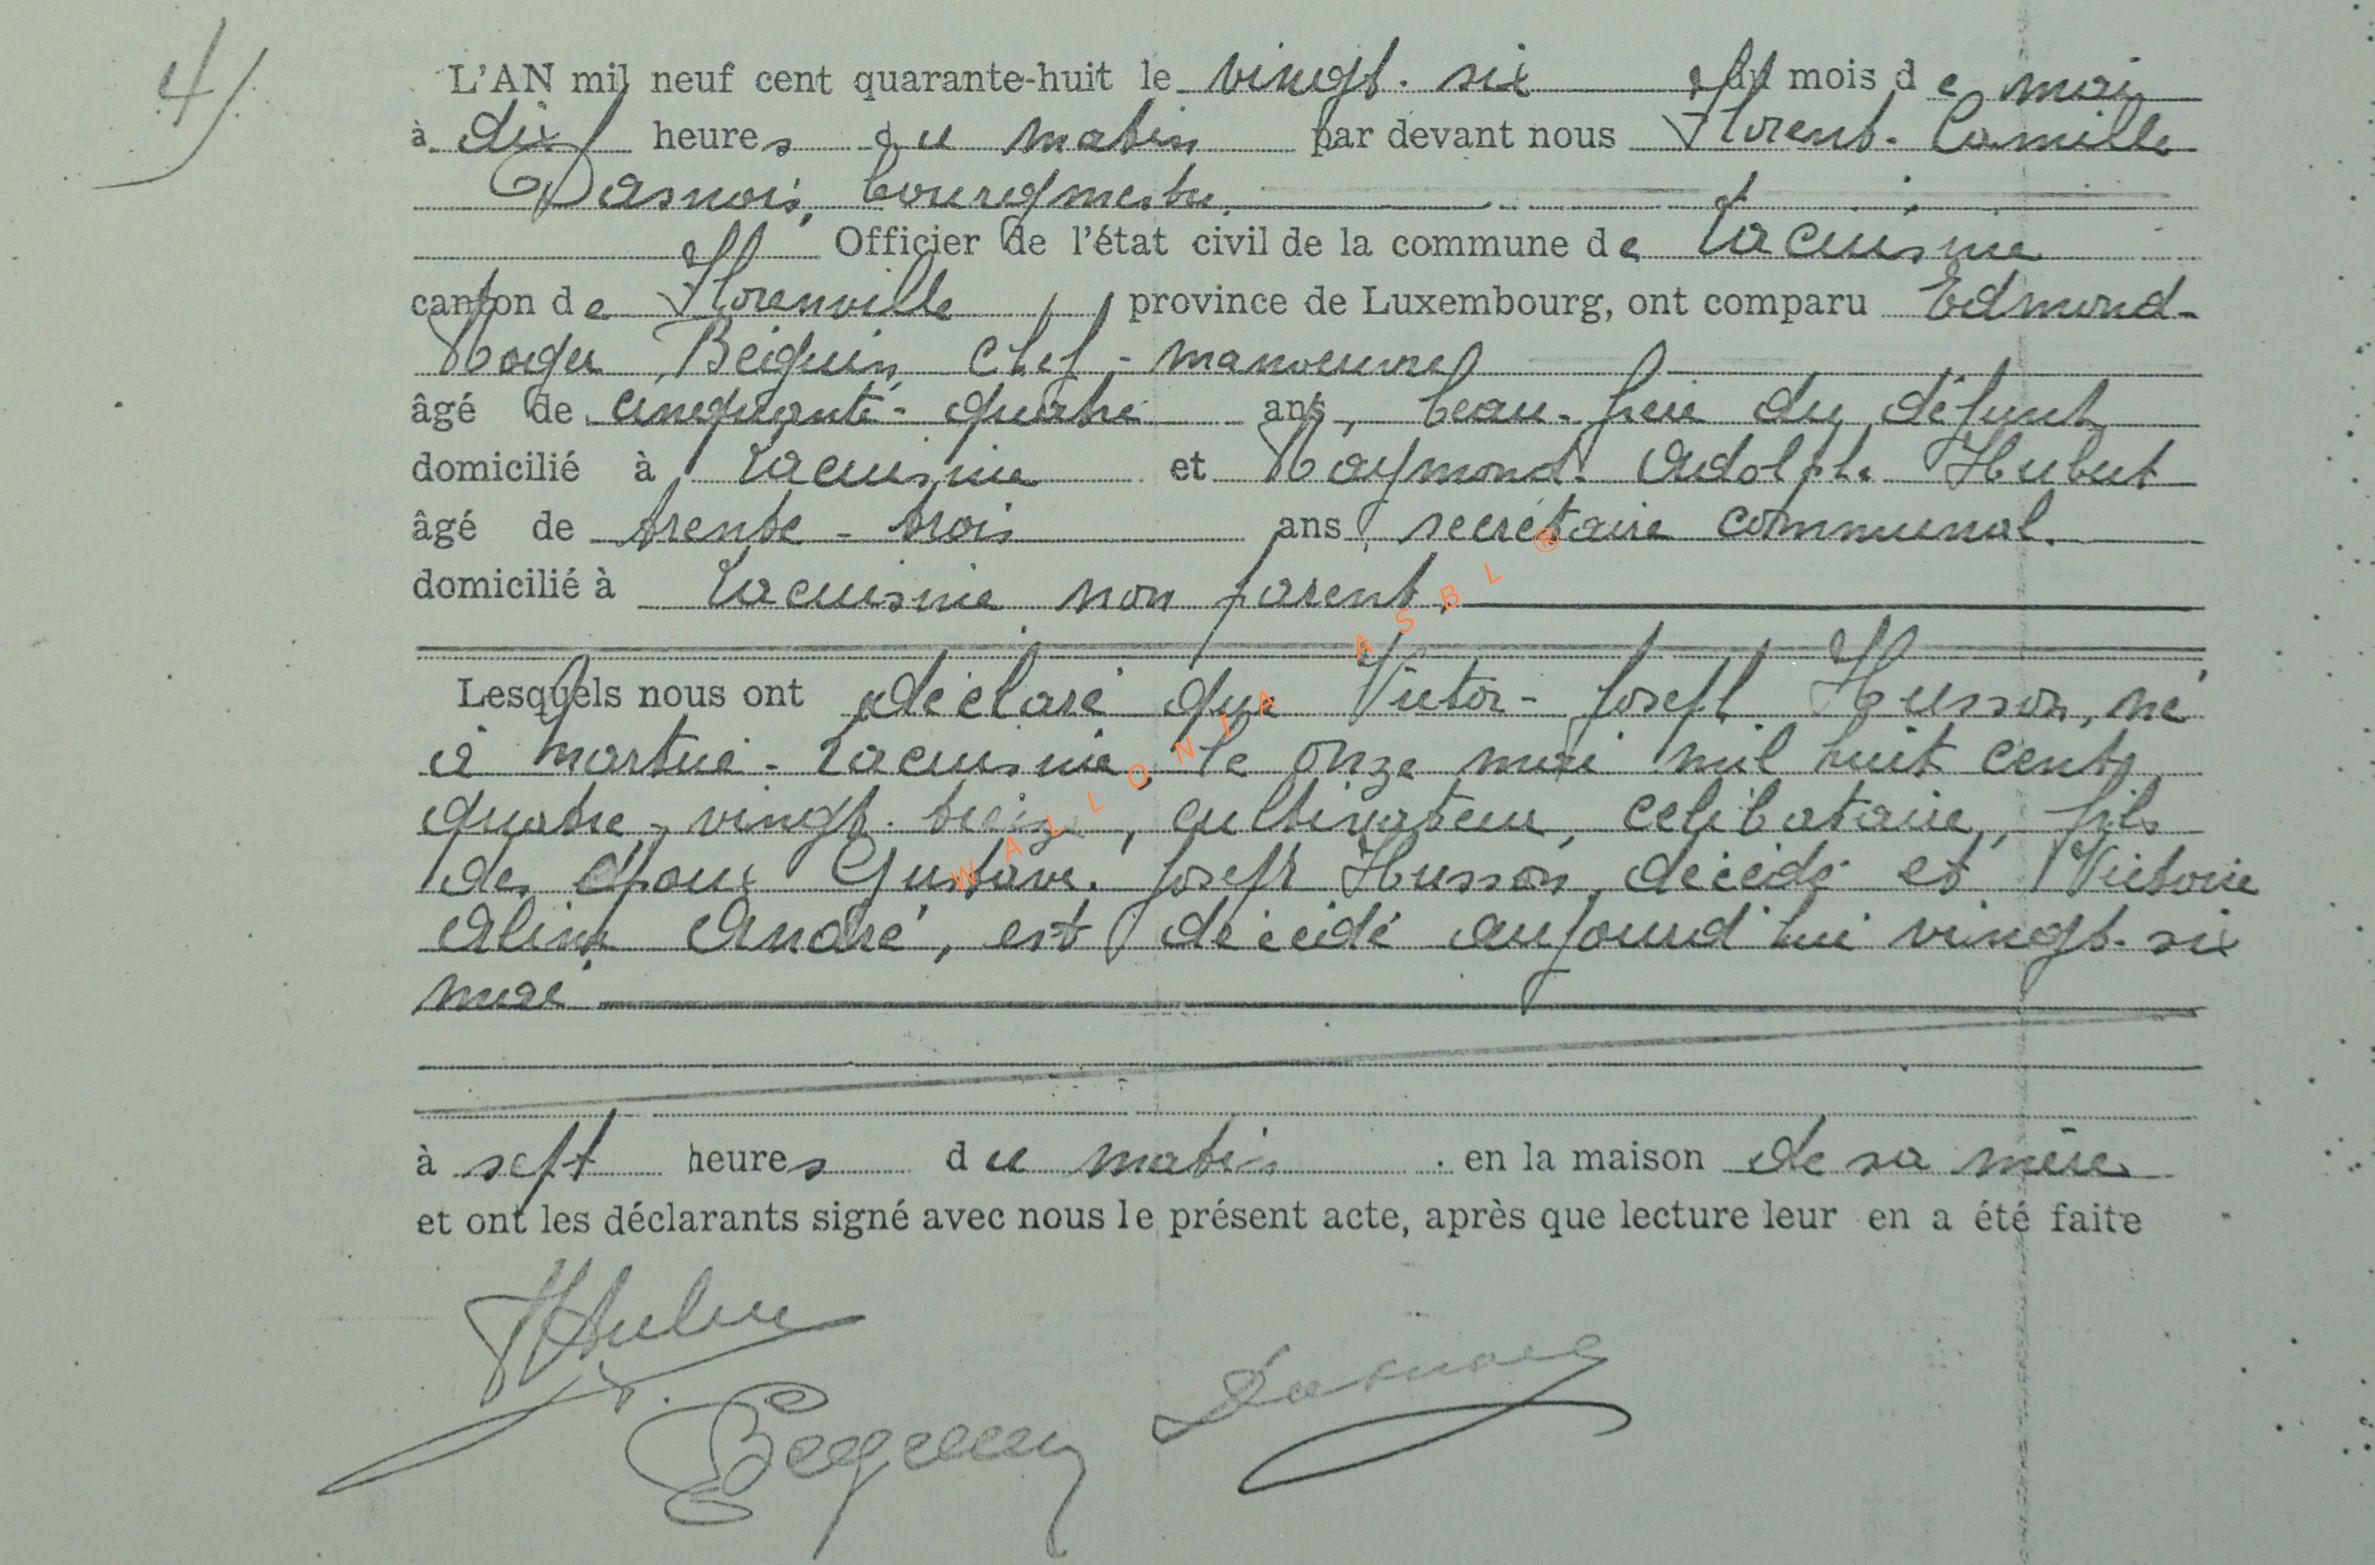 4/
L'AN mil neuf cent quarante-huit le vingt-six du mois de mai
à dix heures du matin par devant nous Florent-Camille
Dasnois, bourgmestre
Officier de l'état civil de la commune de Lacuisine
canton de Florenville province de Luxembourg, ont comparu Edmond-
Roger Béguin, chef-manoeuvre
âgé de cinquante-quatre ans, beau-frère du défunt
domicilié à Lacuisine et Raymond-Adolphe Hubert
âgé de trente-trois ans, secrétaire communal
domicilié à Lacuisine non parent,
Lesquels nous ont déclaré que Victor-Joseph Husson, né
à Martué-Lacuisine, le onze mai mil huit cent
quatre-vingt-treize, cultivateur, célibataire, fils
des époux Gustave-Joseph Husson, décédé et Victorie
Aline André, est décédé aujourd'hui vingt-six
mai
à sept heures du matin en la maison de sa mère
et ont les déclarants signé avec nous le présent acte, après que lecture leur en a été faite
Béguin Dasnois
WALLONIA ASBL ®